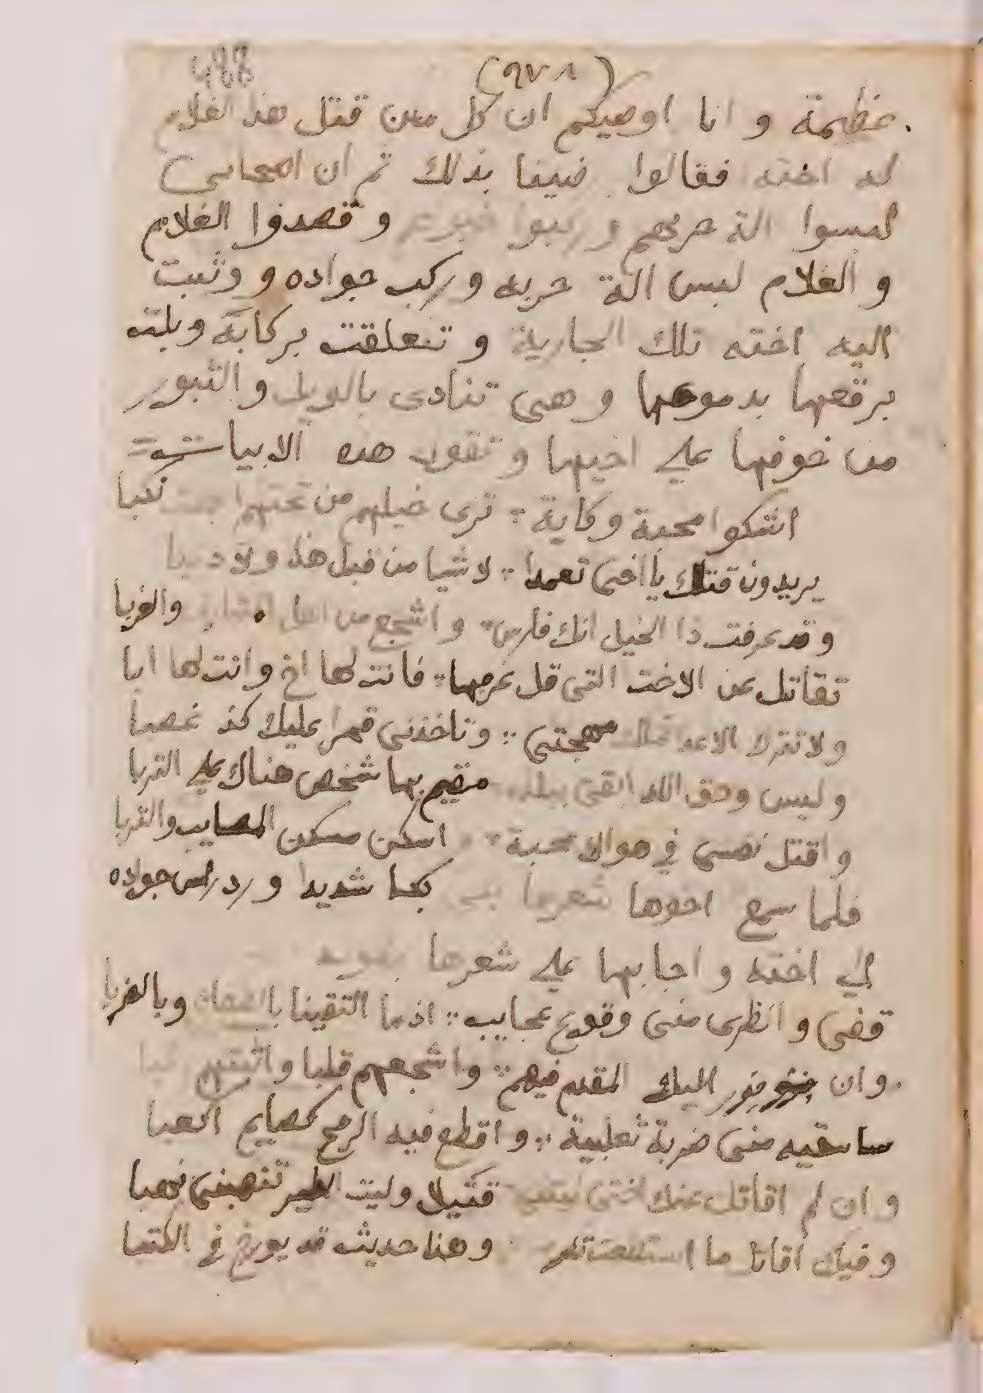 488
(٩٧٨)
عظيمة و انا اوصيكم ان كل من قتل هذ الغلام
له اخته فقالوا رضينا بذلك ثم ان اصحابي
لبسوا الة حربهم و ركبوا خيولهم و قصدوا الغلام
و الغلام لبس الة حربه و ركب جواده و وثبت
اليه اخته تلك الجارية و تعلقت بركابه و بلت
برقعها بدموعها و هي تنادى بالويل و الثبور
من خوفها على اخيها و تقول هذه الابيات
اشكوا محبة وكاية ؞ ترى خيلهم من تحتهم
يريدون قتلك يا اخى تعمدا ؞ لا شيا من قبل هذا ولا
و قد عرفت ذا الخيل انك فارس ؞ و اشجع من والغربا
تقاتل عن الاخت التى قل عزمها ؞ فانت لها اخ وانت لها ابا
ولا تترك الاعدا مهجتى ؞ وتاخذنى قهرا عليك كذ غصبا
و ليس وحق الله مقيم بها شخص هناك على التربا
و اقتل نفسى في هواك محبة ؞ اسكن مسكن المصايب والتربا
فلما سمع اخوها شعرها بكا شديدا و رد راس جواده
الى اخته و اجابها على شعرها يقول
قفى و انظرى منى وقوع عجايب ؞ اذ ما التقينا وبالضربا
و ان اليك المقدم فيهم ؞ واشجعهم قلبا واثبتهم
ساسقيه منى ضربة ثعلبية ؞ و اقطع فيه الرمح
و ان لم اقاتل عنك اختى قتيلا وليت الطير تنهبنى نهبا
و فيك اقاتل ما استطعت وهذا حديث قد يورخ في الكتبا